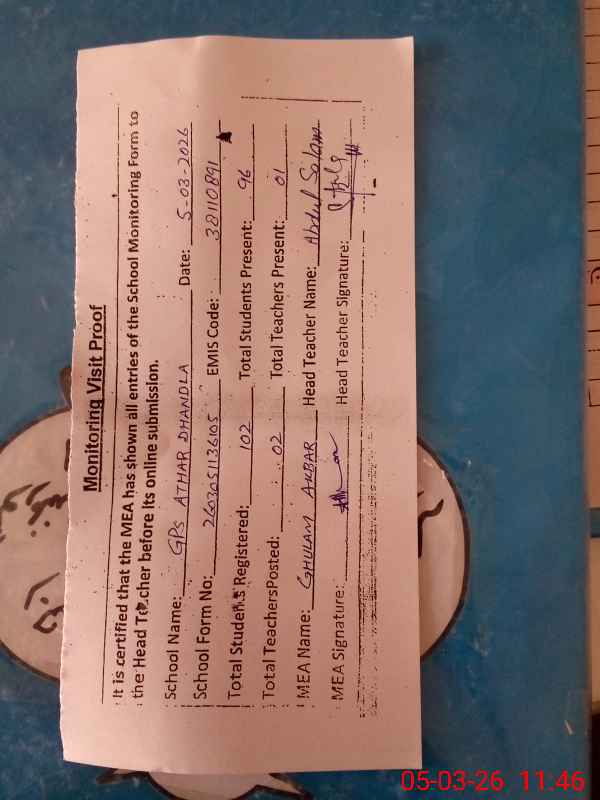 Monitoring Visit Proof
It is certified that the MEA has shown all entries of the School Monitoring Form to
the Head Teacher before its online submission.
School Name: GPS ATHAR DHANDLA Date: 5-03-2026
School Form No: 2603051136105 EMIS Code: 38110891
Total Students Registered: 102 Total Students Present: 96
Total TeachersPosted: 02 Total Teachers Present: 01
MEA Name: GHULAM AKBAR Head Teacher Name: Abdul Salam
MEA Signature: Head Teacher Signature:
05-03-26 11:46